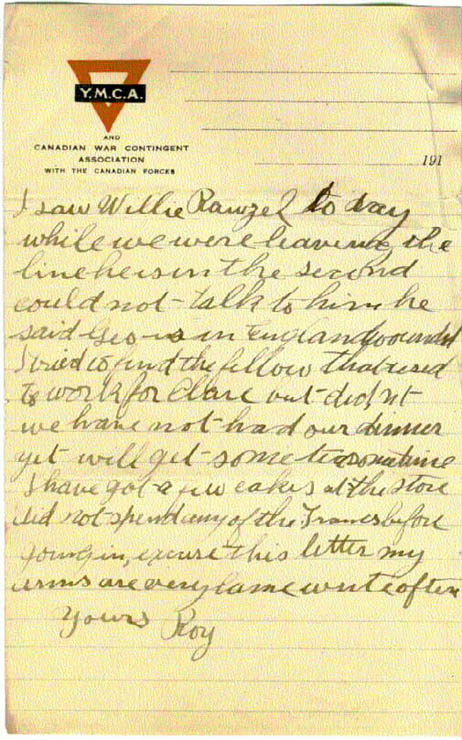 Y.M.C.A.
AND
CANADIAN WAR CONTINGENT
ASSOCIATION
WITH THE CANADIAN FORCES
191
I saw Willie to day
while we were leaving the
line he is in the second
could not talk to him he
said Geo is in England wounded
I tried to find the fellow that used
to work for Clare but didnt
we have not had our dinner
yet will get some tea sometime
I have got a few cakes at the store
did not spend any of the Francs before
going in, excuse this letter my
arms are very lame write often
Yours Roy